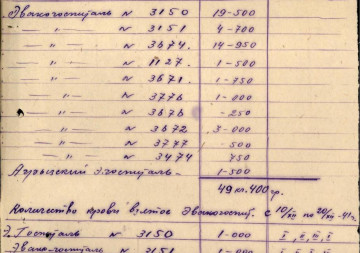 Эвакогоспиталь № 3150 19-500
—"— № 3151 4-700
—"— № 3674. 14-950
—"— № 1127. 1-500
—"— № 3671. 1-750
—"— № 3776 1-000
—"— № 3676 -250
—"— № 3672 3-000
—"— № 3777 -500
—"— № 3474 750
госпиталь- 1-500
49 кл. 400 гр.
Количество крови взятое Эвакогоспит. с 10/XII по 20/XII-41г.
Э. Госпиталь № 3150 1-000 I, II, III, I
Эвакогоспиталь № 3151 1-000